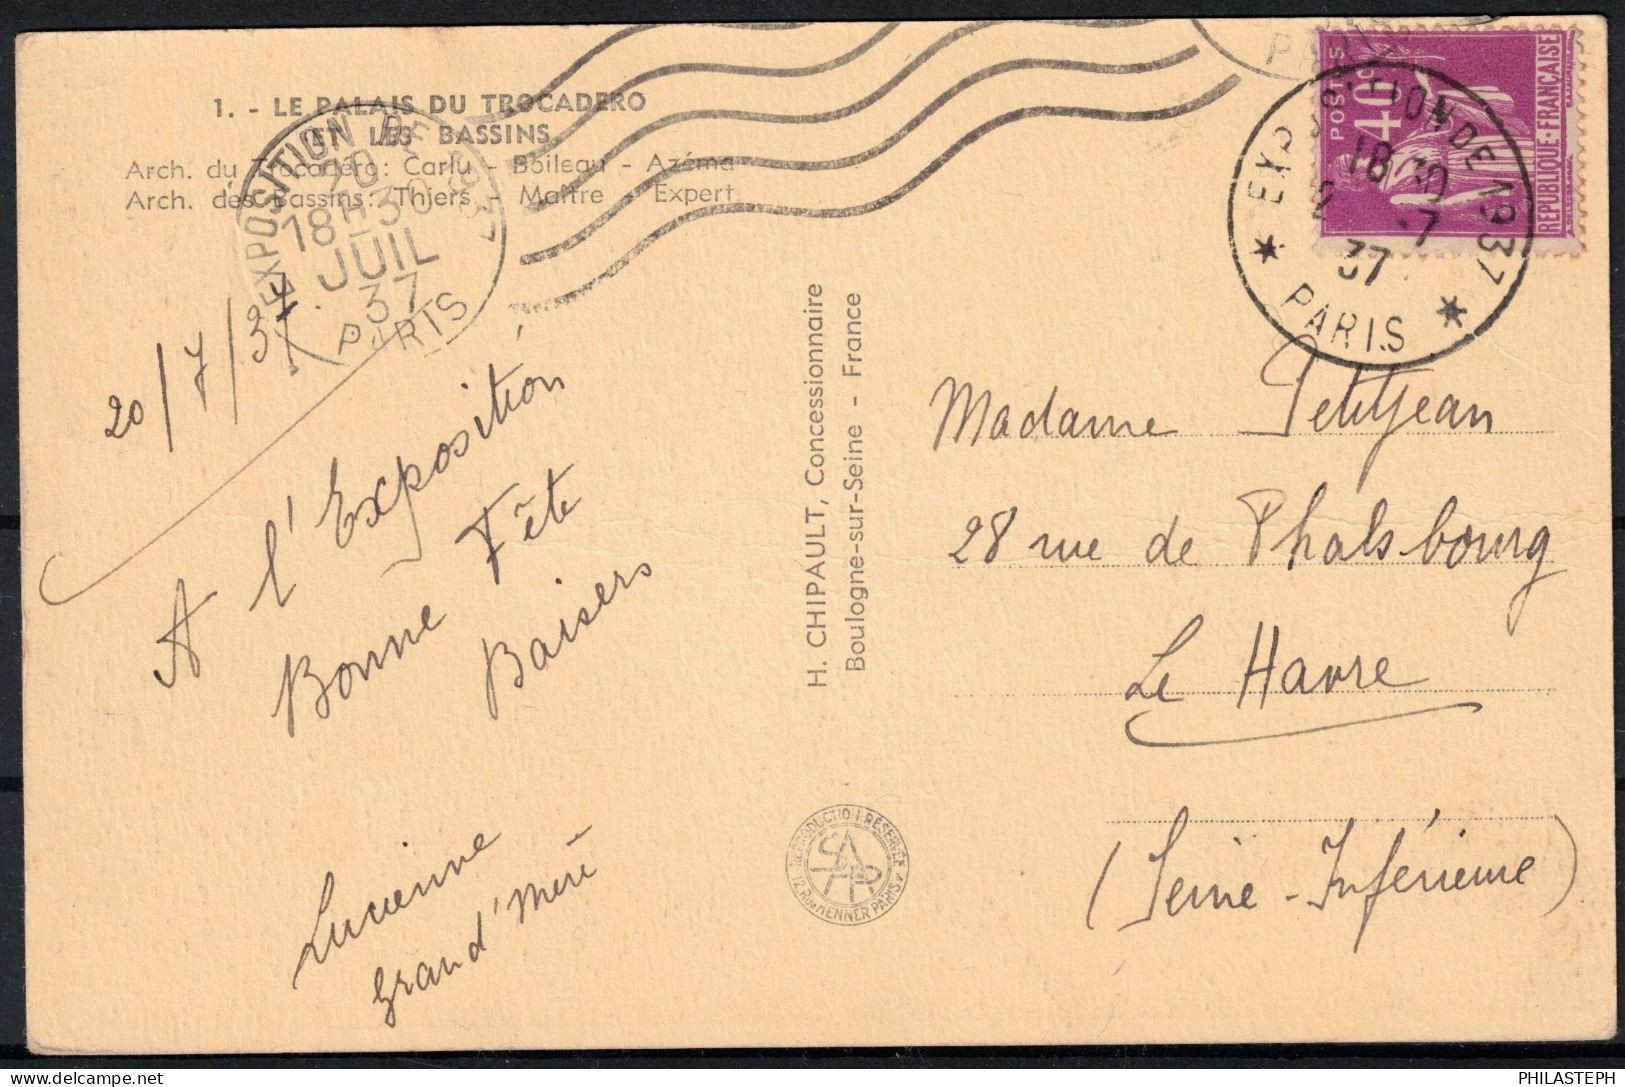 1. - LE PALAIS DU TROCADERO
ET LES BASSINS
Arch. du Trocadéro : Carlu - Boileau - Azéma
Arch. des Bassins : Thiers - Maître - Expert
EXPOSITION DE 1937
20
18H30
JUIL
37
PARIS
PARIS
POSTES
40c
REPUBLIQUE-FRANÇAISE
EXPOSITION DE 1937
18 30
-7
37
★ PARIS ★
20/7/37
A l'Exposition
Bonne Fête
Baisers
Lucienne
Grand'mère
H. CHIPAULT, Concessionnaire
Boulogne-sur-Seine - France
REPRODUCTION RESERVÉE
12 RUE HENNER PARIS
Madame Petitjean
28 rue de Phalsbourg
Le Havre
(Seine-Inférieure)
PHILASTEPH